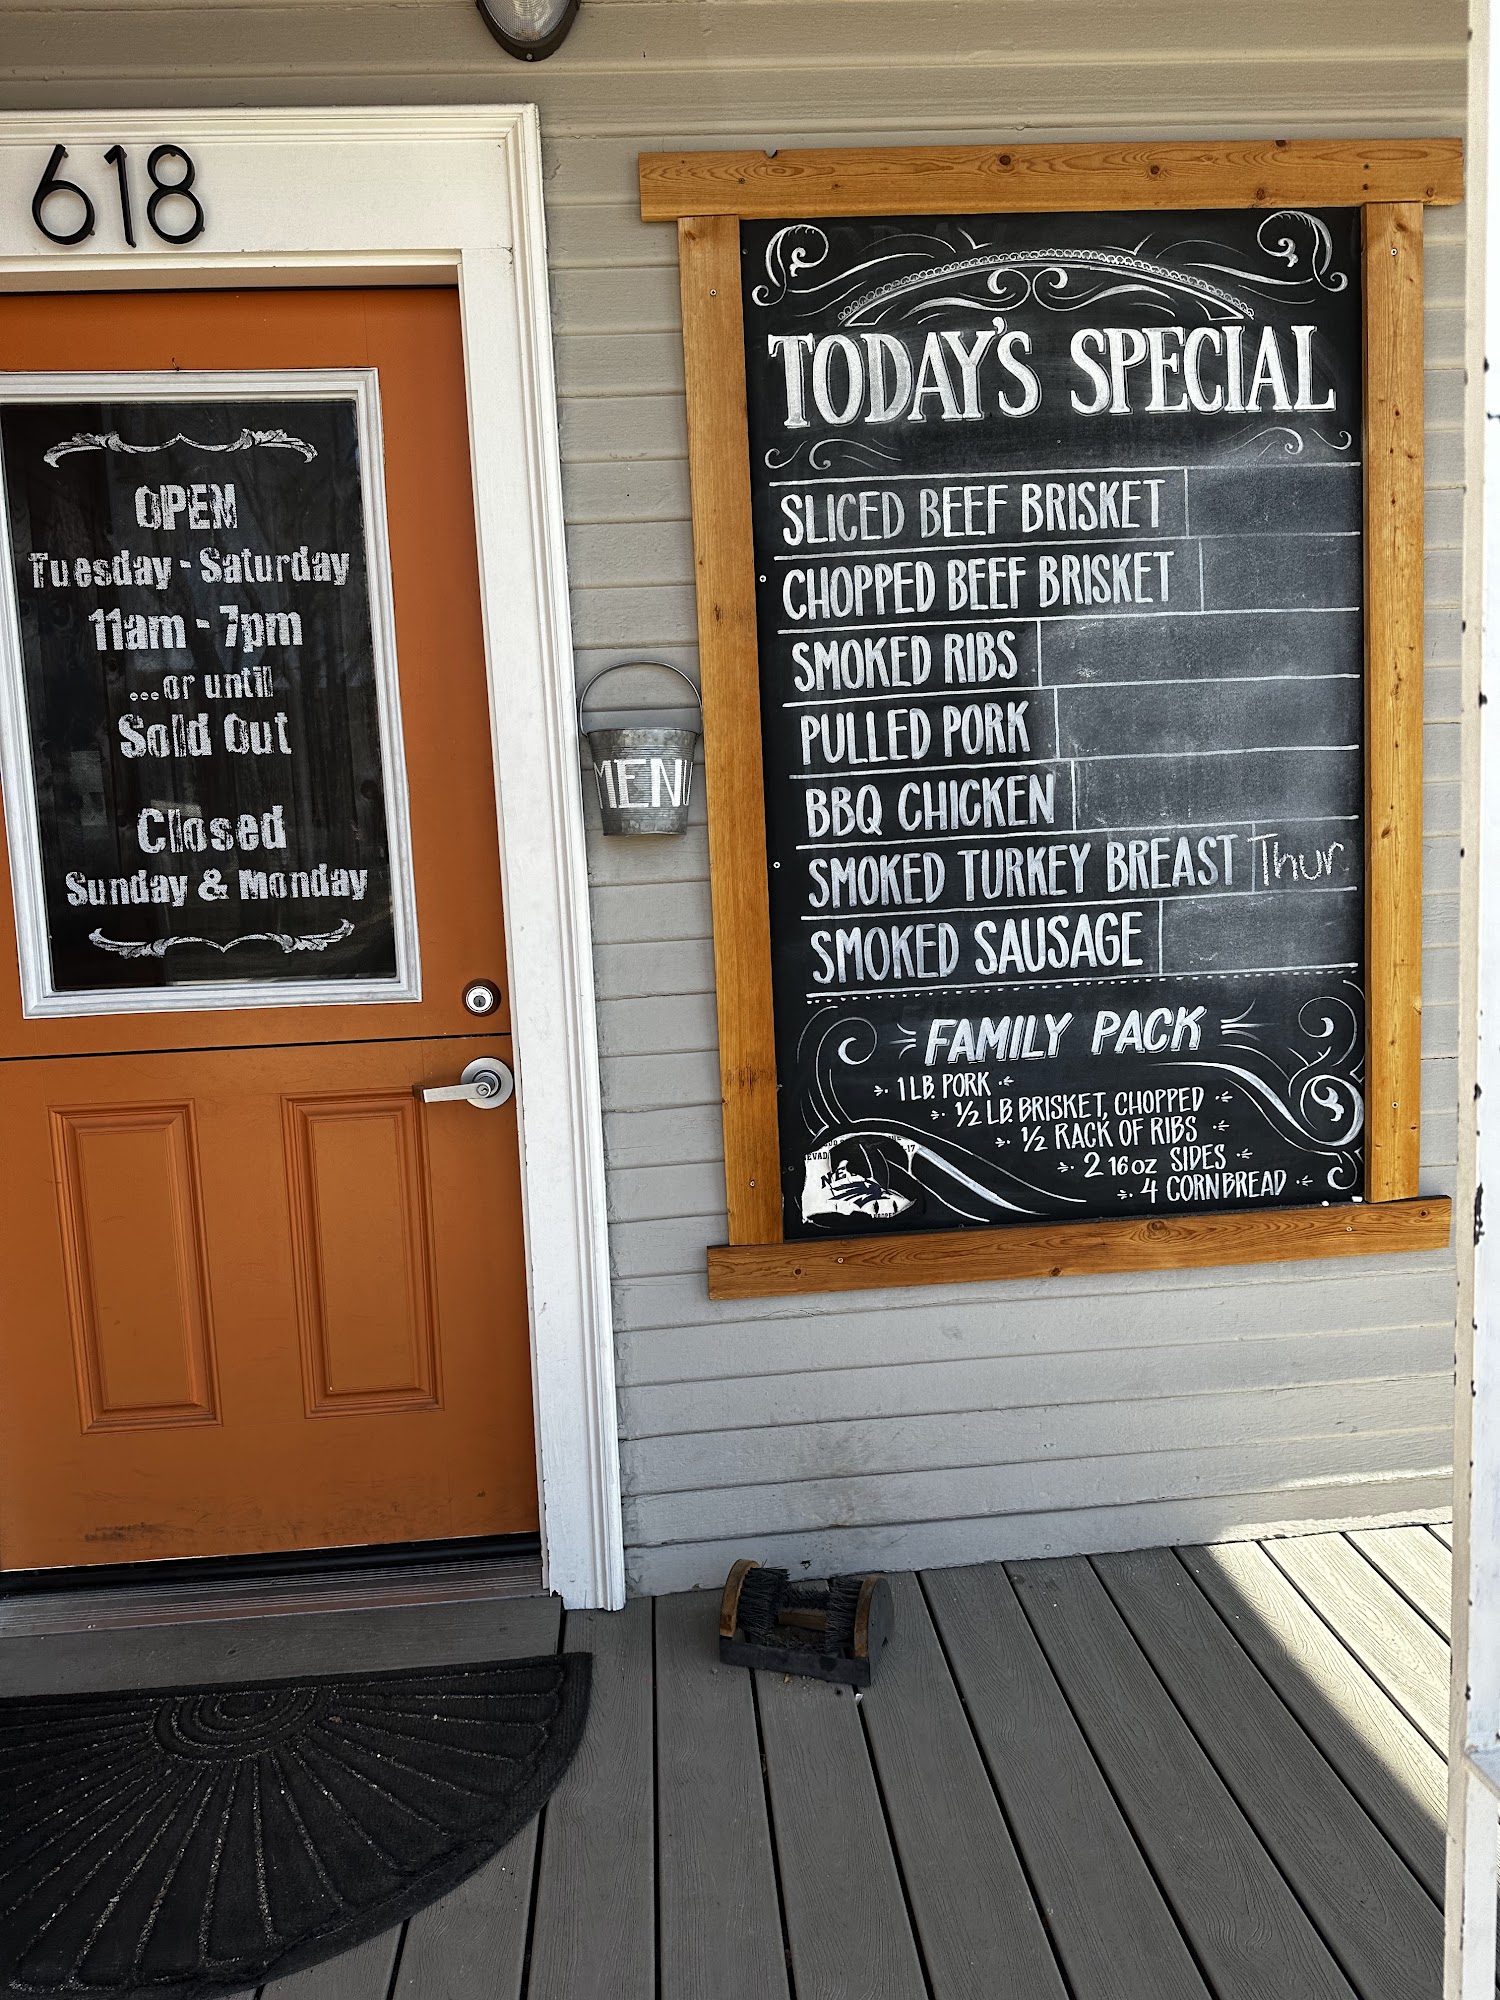 618
OPEN
Tuesday - Saturday
11am - 7pm
...or until
Sold Out
Closed
Sunday & Monday
MENU
TODAY'S SPECIAL
SLICED BEEF BRISKET
CHOPPED BEEF BRISKET
SMOKED RIBS
PULLED PORK
BBQ CHICKEN
SMOKED TURKEY BREAST Thur
SMOKED SAUSAGE
FAMILY PACK
1 LB. PORK
1/2 LB. BRISKET, CHOPPED
1/2 RACK OF RIBS
2 16oz SIDES
4 CORNBREAD